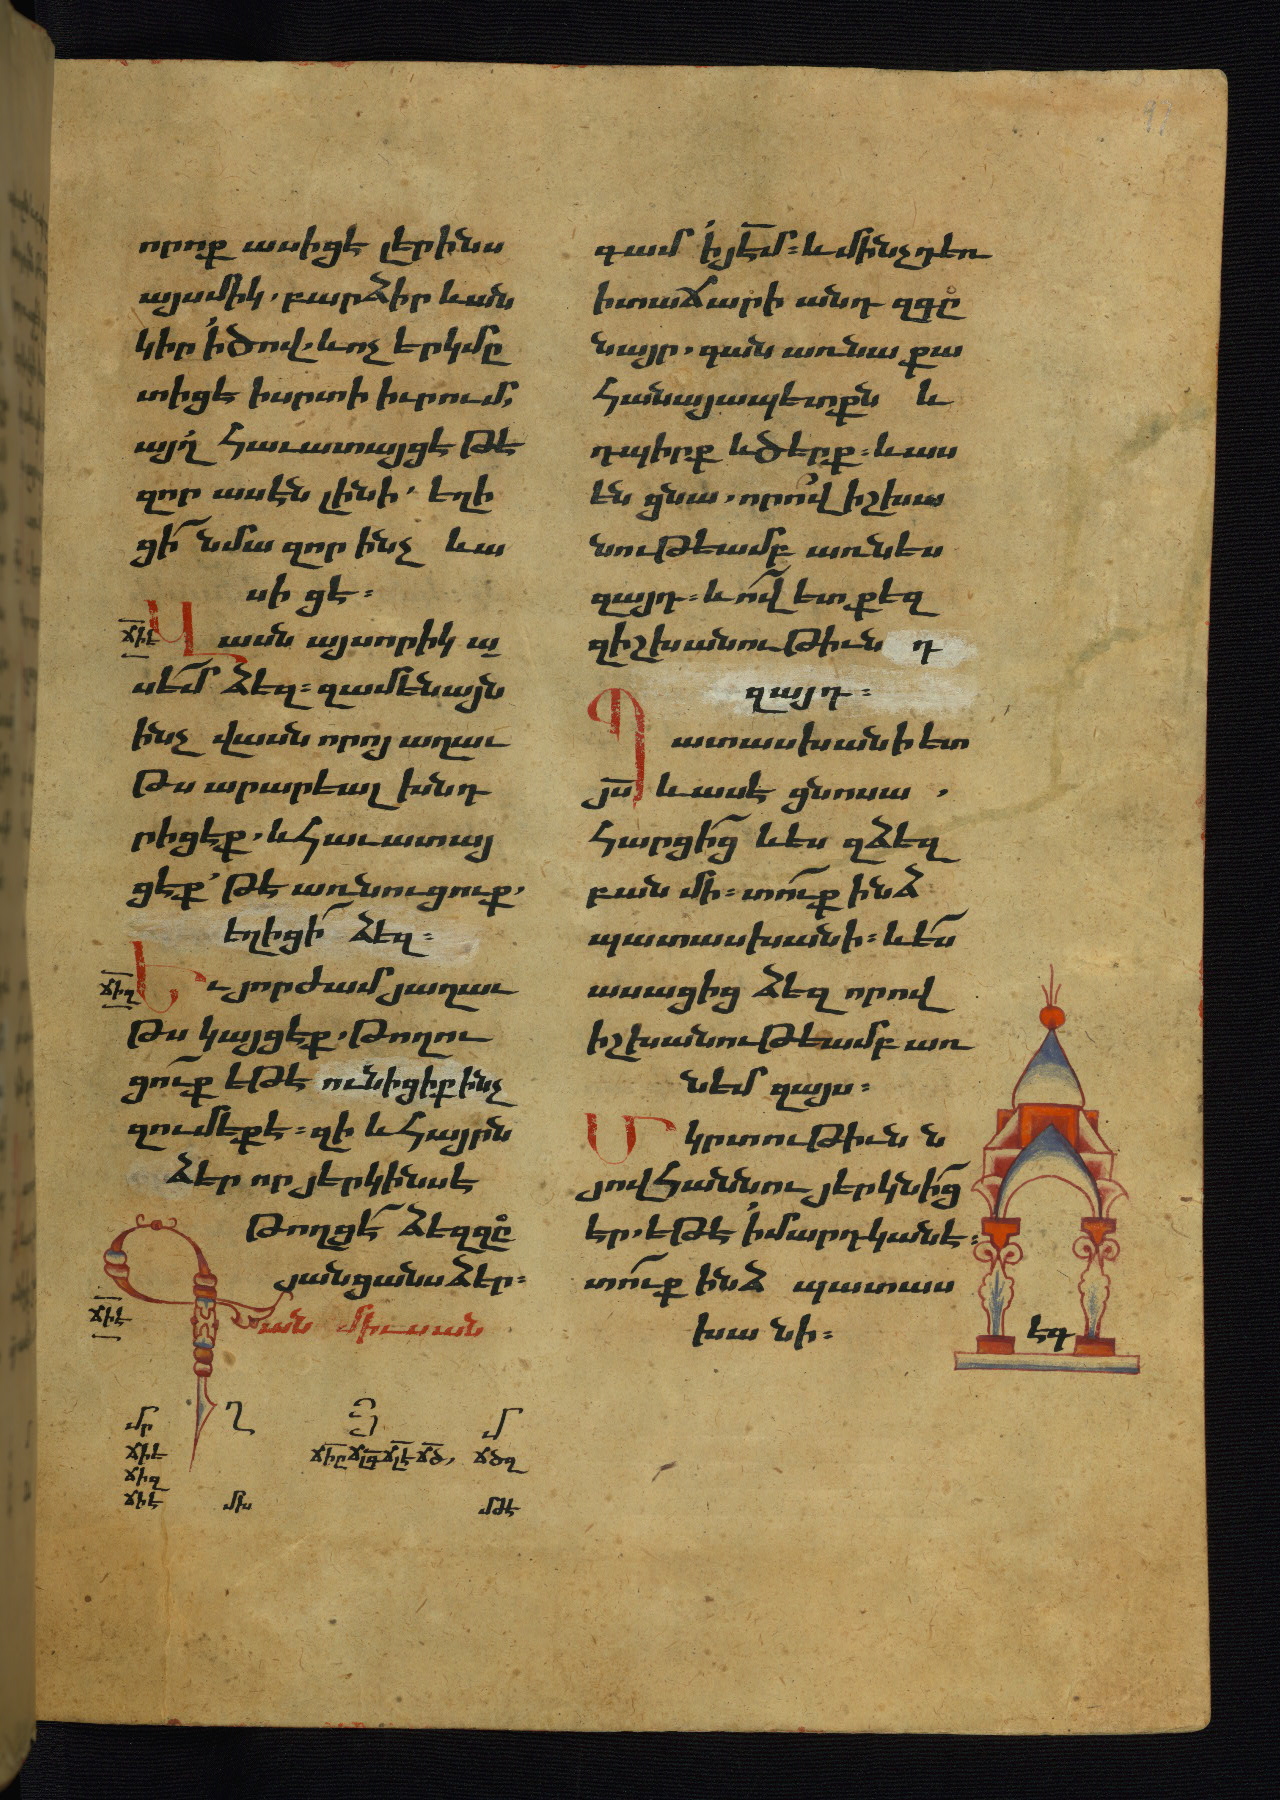 որոք ասիցէ լէրինս
այսմիկ. բարձիր և ան
կիր ՛ի ծով. և ոչ երկմը
տիցէ ի սրտի իւրում,
այղ հաւատայցէ թէ
զոր ասէն լինի. եղի
ցի նմա զոր ինչ և ա
սի ցէ։
ճիէ Վասն այսորիկ ա
սեմ ձեզ։ զամենայն
ինչ վասն որոյ աղաւ
թս արարեալ խնդ
րիցէք. և հաւատայ
ցէք՝ թէ առնուցուք.
եղիցի ձեզ։
ճիզ Եւ յորժամ յաղաւ
թս կայցէք. թողու
ցուք եթէ ունիցիք ինչ
զումեքէ։ զի և հայրն
ձեր որ յերկինս է
թողցէ ձեզ զը
յանցանս ձեր։
ճիէ Գան միւսան
գամ ՛ի յէմ։ և մինչ դեռ
ի տաճարի անդ զգը
նայր. գան առ նա քա
հանայապետքն և
դպիրք և ծերք։ և աս
են ցնա. որով իշխա
նութեամբ առնես
զայդ։ և ով ետ քեզ
զիշխանութիւն դ
զայդ։
Պատասխանի ետ
յս և ասէ ցնոսա.
հարցից և ես զձեզ
բան մի։ տուք ինձ
պատասխանի։ և ես
ասացից ձեզ որով
իշխանութեամբ առ
նեմ զայս։
Մկրտութիւն ն
յովհաննու յերկնից
էր. եթէ ՛ի մարդկանէ։
տուք ինձ պատաս
խա նի։
եգ
մր ղ յ մ
ճիե ճիը ճլգ ճլէ ճծ, ճծզ
ճիզ
ճիէ միս մթէ